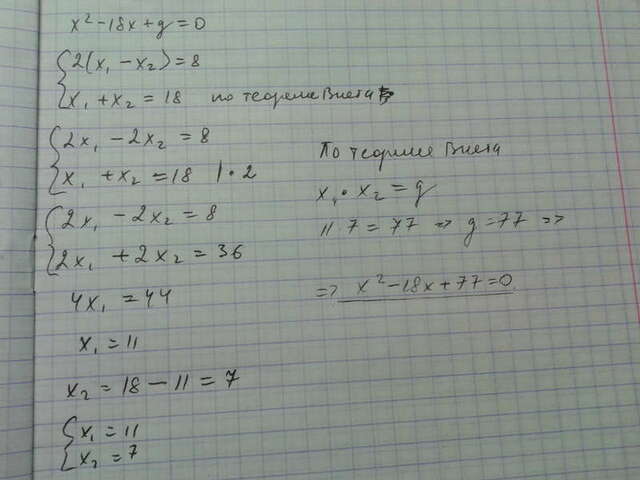 x² - 18x + g = 0
2(x₁ - x₂) = 8
x₁ + x₂ = 18 по теореме Виета
2x₁ - 2x₂ = 8
x₁ + x₂ = 18 | · 2
2x₁ - 2x₂ = 8
2x₁ + 2x₂ = 36
4x₁ = 44
x₁ = 11
x₂ = 18 - 11 = 7
x₁ = 11
x₂ = 7
По теореме Виета
x₁ · x₂ = g
11 · 7 = 77 => g = 77 =>
=> x² - 18x + 77 = 0